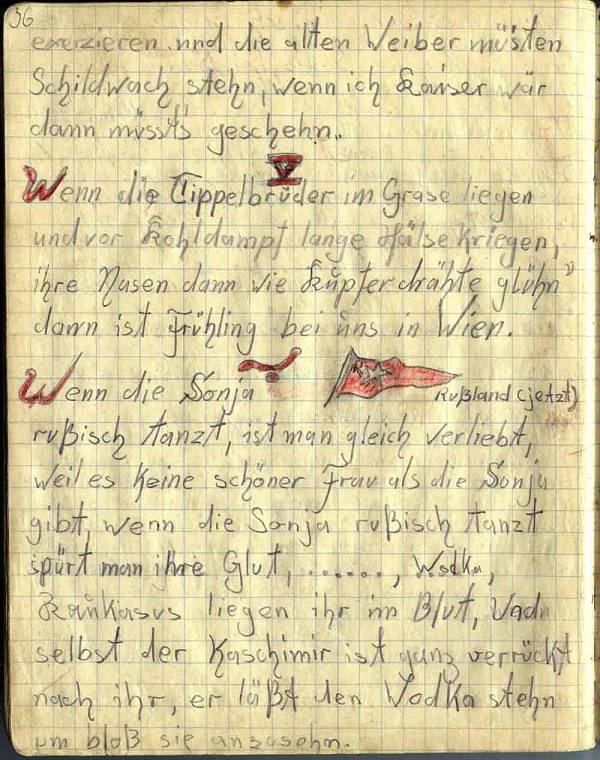 36
exerzieren und die alten Weiber müsten
Schildwach stehn, wenn ich Kaiser wär
dann müsst's geschehn.
Wenn die Tippelbrüder im Grase liegen
und vor Kohldampf lange Hälse kriegen,
ihre Nasen dann wie Kupferdrähte glühn"
dann ist Frühling bei uns in Wien.
Wenn die Sonja
Rußland (jetzt)
rußisch tanzt, ist man gleich verliebt,
weil es keine schöner Frau als die Sonja
gibt, wenn die Sonja rußisch tanzt
spürt man ihre Glut, ......, Wodka,
Kaukasus liegen ihr im Blut, Und
selbst der Kaschimir ist ganz verrückt
nach ihr, er läßt den Vodka stehn
um bloß sie anzusehn.